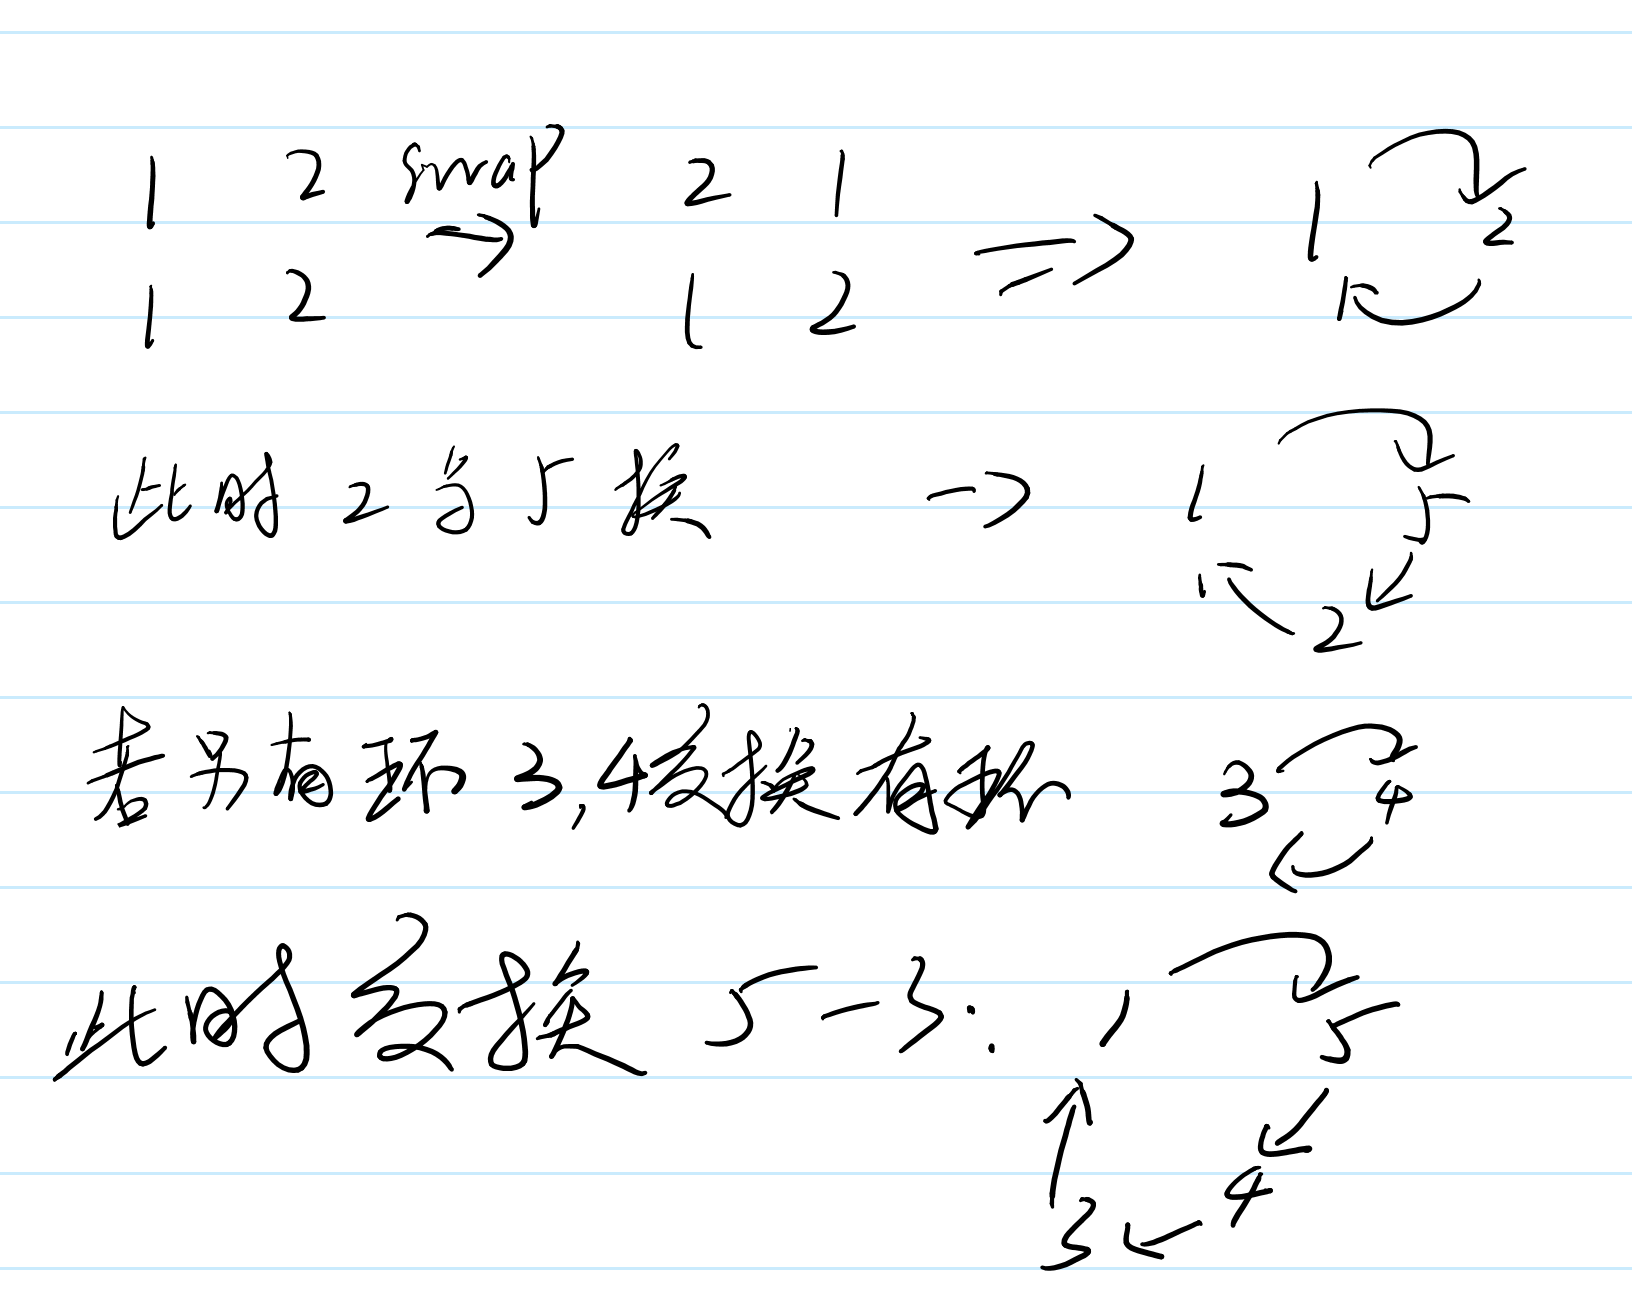 1 2 swap 2 1
1 2 → 1 2 ⇒ 1 2
1
此时 2 与 5 换 → 1 5
1 2
若另有环 3,4交换有环 3 4
此时交换 5-3: 1 5
4
3